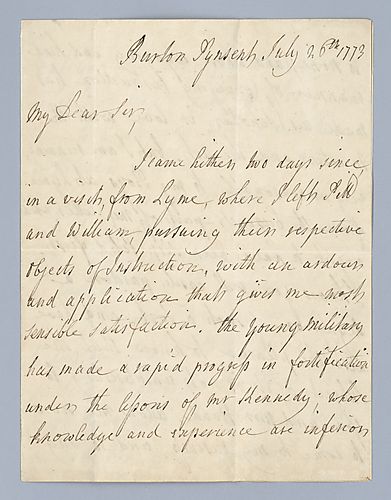 Burton Pynsent July 26th 1773
My Dear Sir,
I came hither two days since,
in a visit, from Lyme, where I left
and William, pursuing their respective
objects of Instruction, with an ardour
and application that gives me most
sensible satisfaction. the young military
has made a rapid progress in fortification
under the lessons of Mr Kennedy; whose
knowledge and experience are inferior